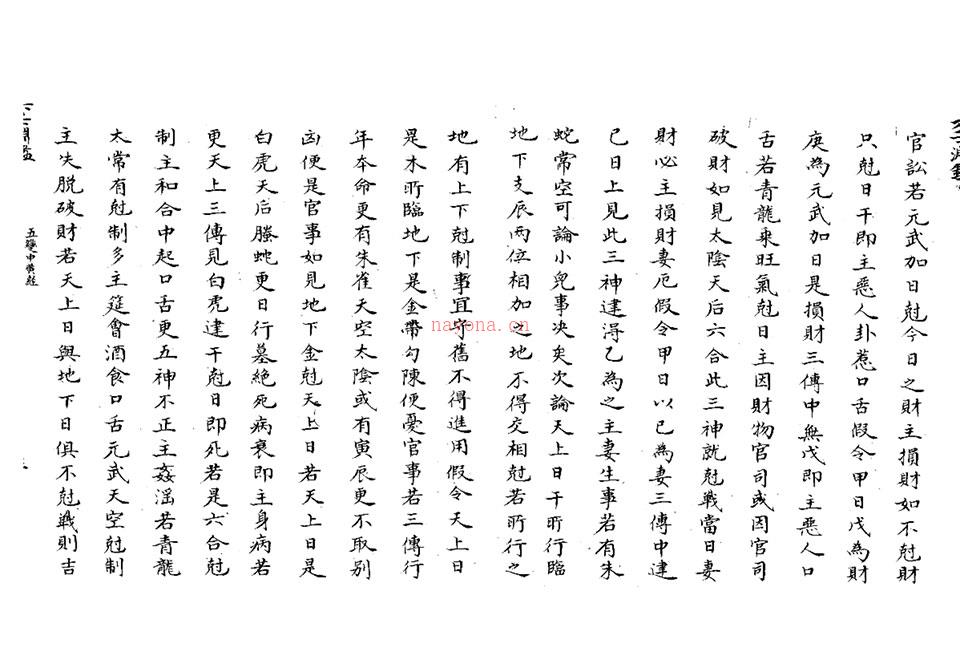 官訟若元武加日尅今日之財主損財如不尅財
只尅日干即主惡人卦惹口舌假令甲日戊為財
庚為元武加日是損財三傳中無戊即主惡人口
舌若青龍乘旺氣尅日主因財物官司或因官司
破財如見太陰天后六合此三神就尅戰當日妻
財必主損財妻厄假令甲日以己為妻三傳中建
己日上見此三神建得乙為之主妻生事若有朱
蛇常空可論小兒事决矣次論天上日干所行臨
地下支辰两位相加之地不得交相尅若所行之
地有上下尅制事宜守舊不得進用假令天上日
是木所臨地下是金帶勾陳便憂官事若三傳行
年本命更有朱雀天空太陰或有寅辰更不取别
凶便是官事如見地下金尅天上日若天上日是
白虎天后螣蛇更日行墓絶死病衰即主身病若
更天上三傳見白虎建干尅日即死若是六合尅
制主和合中起口舌更五神不正主姦淫若青龍
太常有尅制多主筵會酒食口舌元武天空尅制
主失脱破財若天上日與地下日俱不尅戰則吉
五變中黄經
nayona.cn